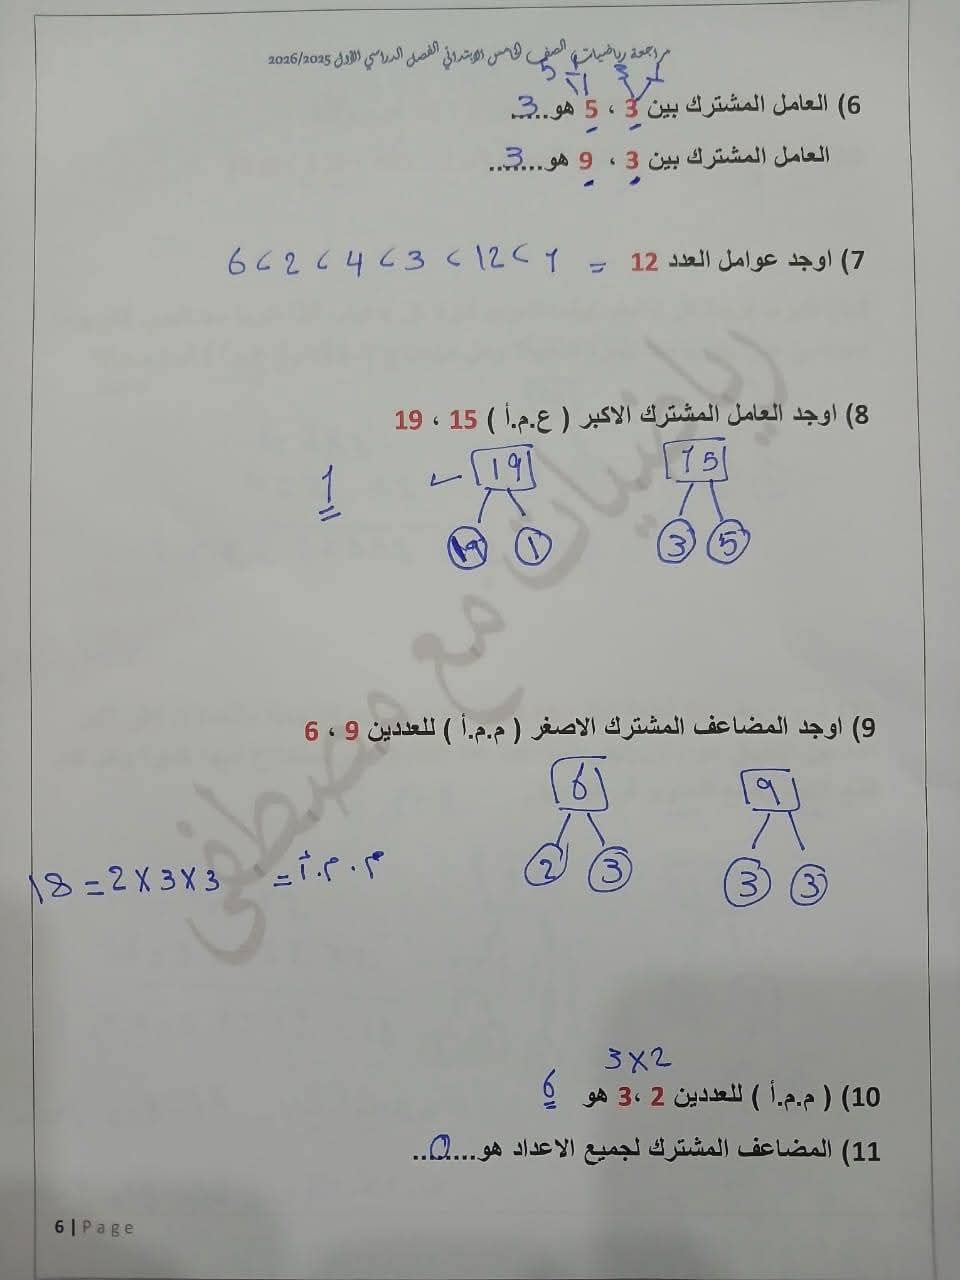 مراجعة رياضيات الصف الخامس الابتدائي الفصل الدراسي الأول 2026/2025
1 3 1 5
6) العامل المشترك بين 3 ، 5 هو..3....
العامل المشترك بين 3 ، 9 هو....3...
7) اوجد عوامل العدد 12 = 1 > 12 > 3 > 4 > 2 > 6
8) اوجد العامل المشترك الاكبر ( ع.م.أ ) 15 ، 19
15 19 1
3 5 19 1
9) اوجد المضاعف المشترك الاصغر ( م.م.أ ) للعددين 9 ، 6
9 6
3 3 2 3
م.م.أ = 3 × 3 × 2 = 18
3 × 2
10) ( م.م.أ ) للعددين 2 ،3 هو 6
11) المضاعف المشترك لجميع الاعداد هو....0..
رياضيات مع مصطفى
6 | Page